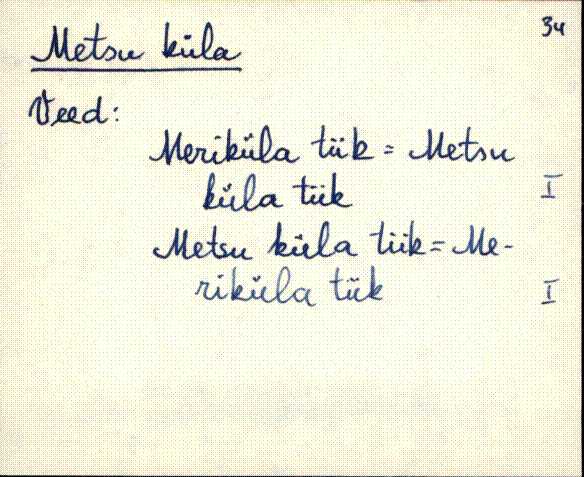 34
Metsu küla
Veed:
Meriküla tiik = Metsu
küla tiik I
Metsu küla tiik = Me-
riküla tiik I